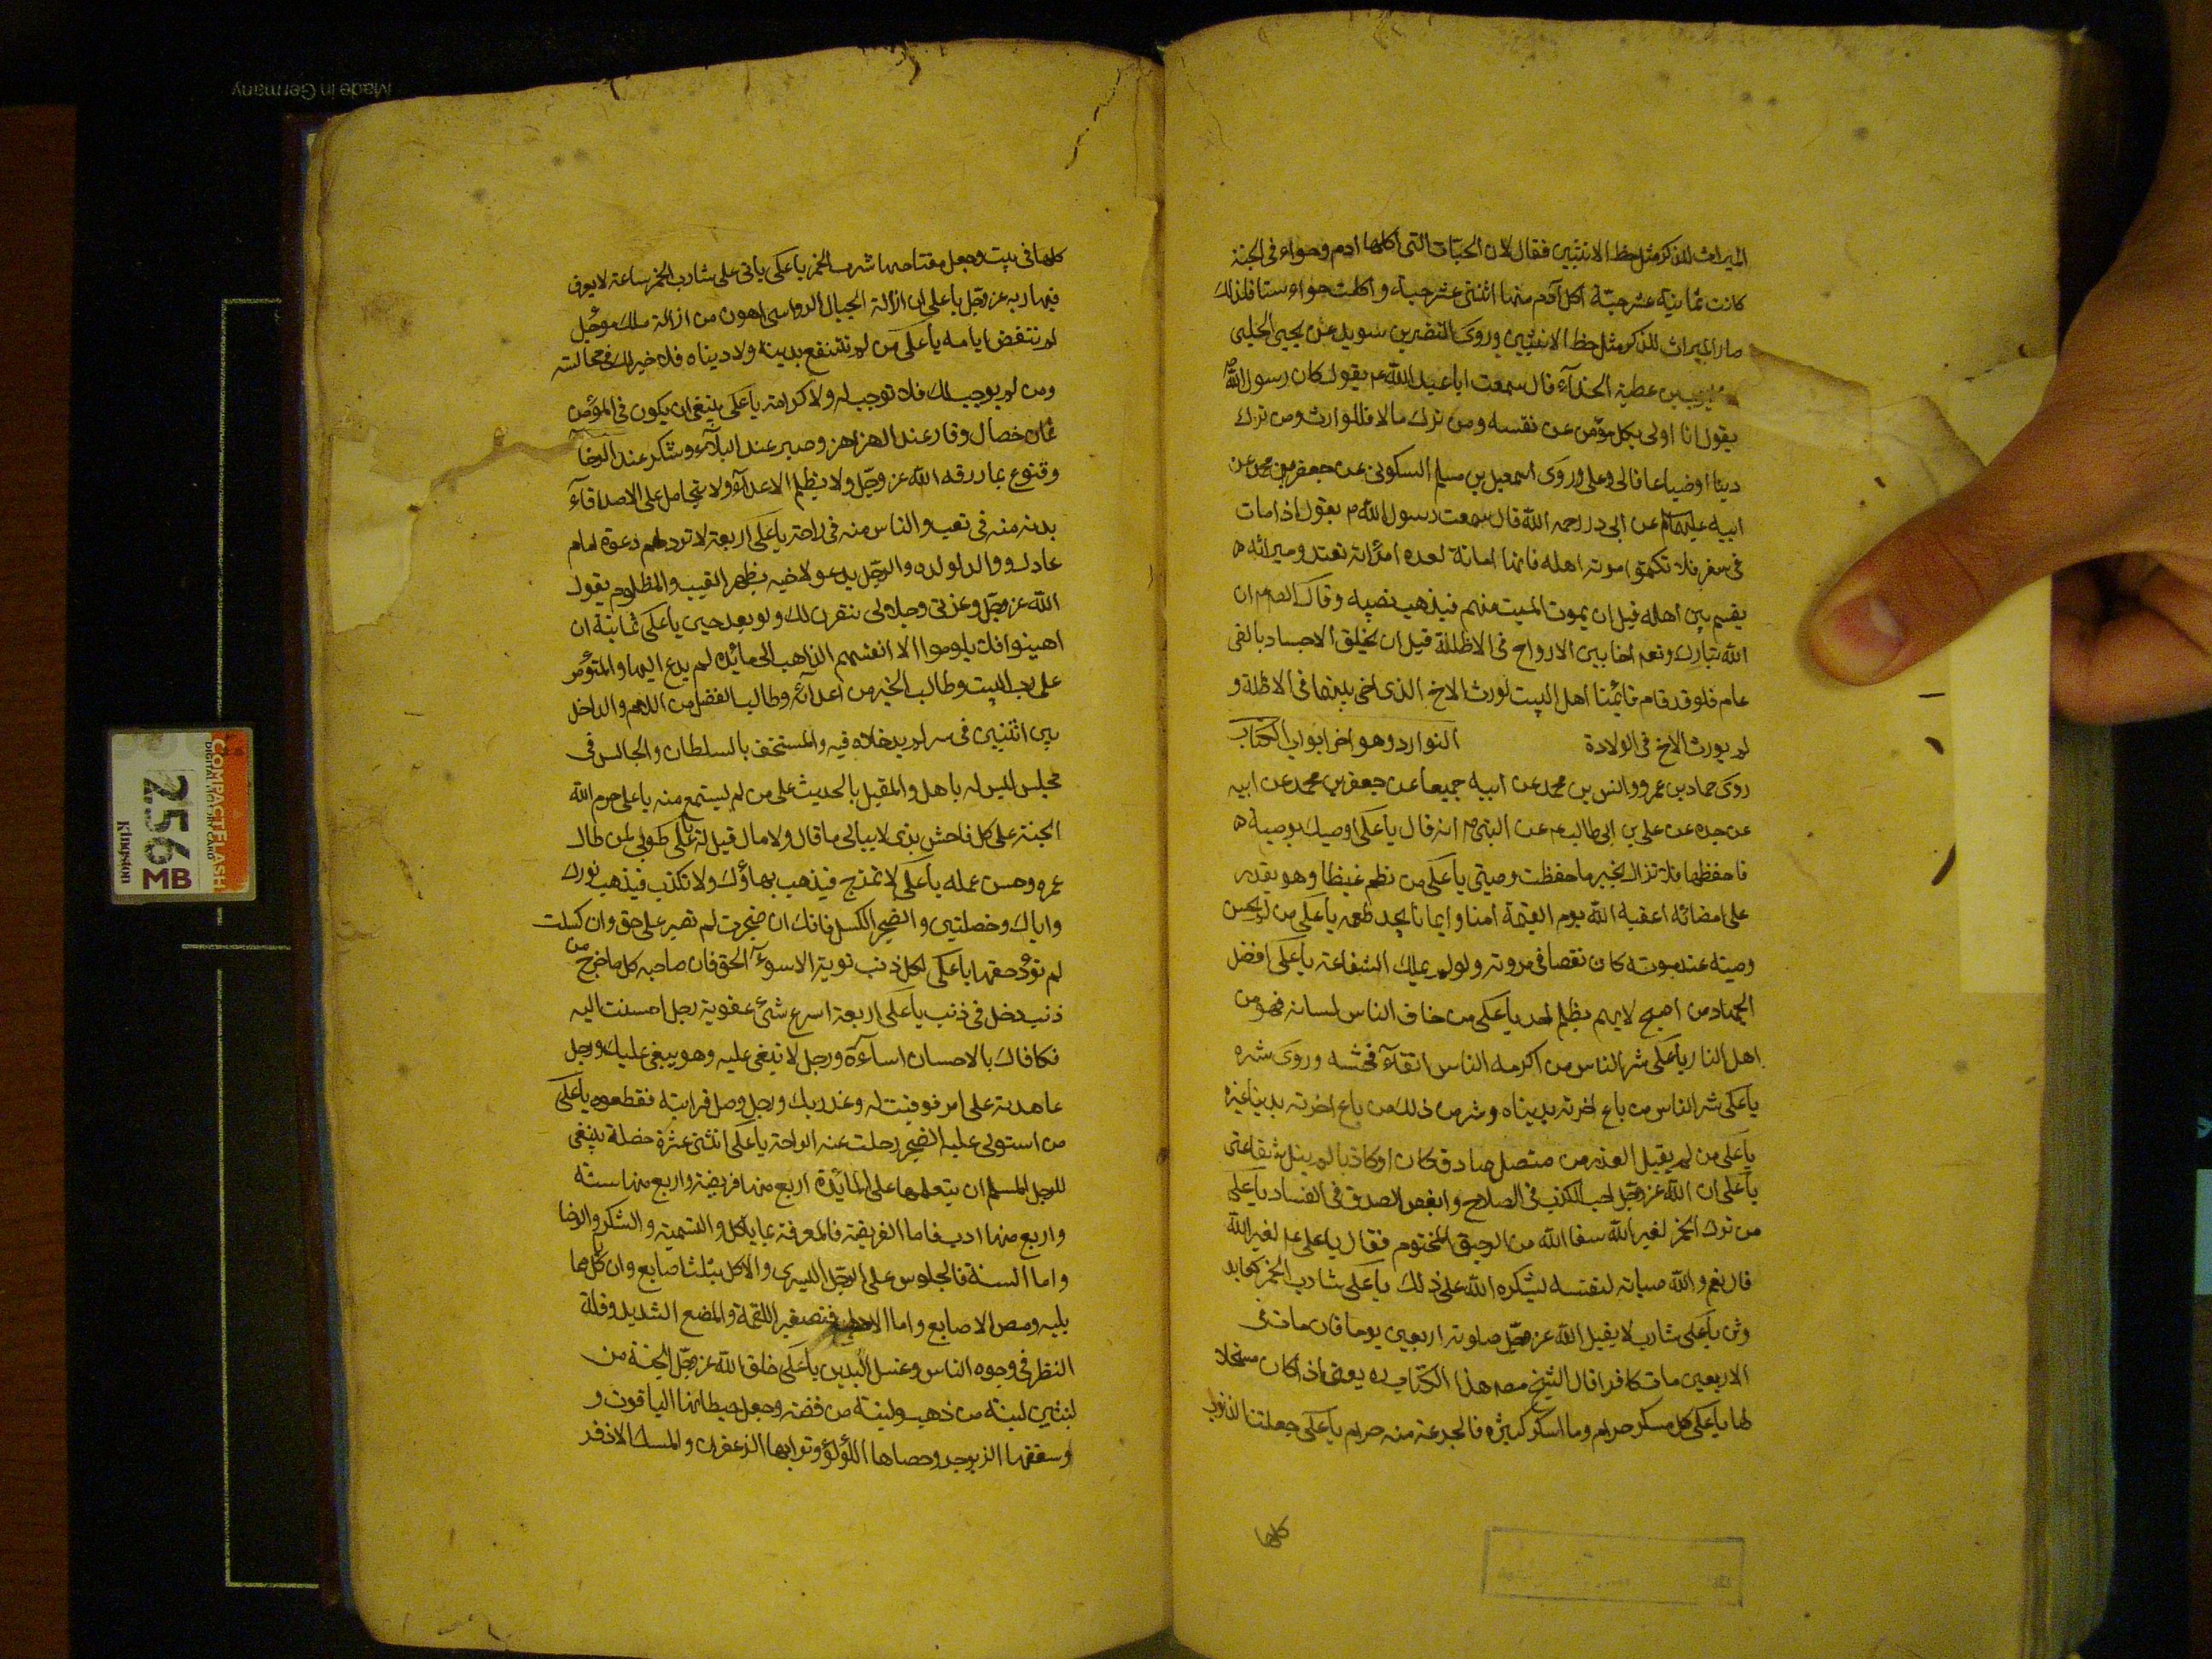 الميراث للذكر مثل حظ الانثيين فقال لان الحبّات التى اكلها ادم وحواء فى الجنة
كانت ثمانية عشر حبّة اكل آدم منها اثنتى عشر حبة واكلت حواء ستا فلذلك
صار الميراث للذكر مثل حظ الانثيين وروى النضر بن سويد عن يحيى الحلبى
عن ايوب بن عطية الحذآء قال سمعت ابا عبد الله ع يقول كان رسول الله ص
يقول انا اولى بكل مؤمن من نفسه ومن ترك مالا فللوارث ومن ترك
دينا اوضياعا فالى وعلى وروى اسمعيل بن مسلم السكونى عن جعفر بن محمد عن
ابيه عليهما عن ابى ذر رحمه الله قال سمعت رسول الله ص يقول اذا مات
فى سفر فلا تكتموا موته اهله فانها امانة لعدة امرأته تعتد وميراثه
يقسم بين اهله قبل ان يموت الميت منهم فيذهب نصيبه وقال ان
الله تبارك وتعالى اخا بين الارواح فى الاظلة قبل ان يخلق الاجساد بالفى
عام فلو قد قام قائمنا اهل البيت لورث الاخ الذى اخى بينهما فى الاظلة و
لم يورث الاخ فى الولادة النوادر وهو اخر ابواب الكتاب
روى حماد بن عمرو وانس بن محمد عن ابيه جميعا عن جعفر بن محمد عن ابيه
عن جده عن على بن ابى طالب ع عن النبى ص انه قال يا على اوصيك بوصية
فاحفظها فلا تزال بخير ما حفظت وصيتى يا على من كظم غيظا وهو يقدر
على امضائه اعقبه الله يوم القيمة امنا وايمانا يجد طعمه يا على من لم يحسن
وصيته عند موته كان نقصا فى مروته ولم يملك الشفاعة يا على افضل
الجهاد من اصبح لا يهم بظلم احد يا على من خاف الناس لسانه فهو من
اهل النار يا على شر الناس من اكرمه الناس اتقآء فحشه وروى شره
يا على شر الناس من باع اخرته بدنياه وشر من ذلك من باع اخرته بدنيا غيره
يا على من لم يقبل العذر من متنصل صادق كان او كاذبا لم ينل شفاعتى
يا على ان الله عز وجل احب الكذب فى الصلاح وابغض الصدق فى الفساد يا على
من ترك الخمر لغير الله سقا الله من الرحيق المختوم فقال يا على لغير الله
قال نعم والله صيانة لنفسه ليشكره الله على ذلك يا على شارب الخمر كعابد
وثن يا على شارب لا يقبل الله عز وجل صلوته اربعين يوما فان مات فى
الاربعين مات كافرا قال الشيخ مص هذا الكتاب ره يعنى اذا كان مستحلا
لها يا على كل مسكر حرام وما اسكر كثيره فالجرعة منه حرام يا على جعلت الذنوب
كلها
كلها فى بيت وجعل مفتاحها شرب الخمر يا على ياتى على شارب الخمر ساعة لا يعرف
فيها ربه عز وجل يا على ان ازالة الجبال الرواسى اهون من ازالة ملك مؤجل
لم تنقض ايامه يا على من لم تنتفع بدينه ولا دنياه فلا خير لك فى مجالسته
ومن لم يوجب لك فلا توجب له ولا كرامة يا على ينبغى ان يكون فى المؤمن
ثمان خصال وقار عند الهزاهز وصبر عند البلآء وشكر عند الرخآ
وقنوع بما رزقه الله عز وجل ولا يظلم الاعدآء ولا يتحامل على الاصدقآء
بدنه منه فى تعب والناس منه فى راحة يا على اربعة لا ترد لهم دعوة امام
عادل ووالد لولده والرجل يدعو لاخيه بظهر الغيب والمظلوم يقول
الله عز وجل وعزتى وجلالى لانتصرن لك ولو بعد حين يا على ثمانية ان
اهينوا فلا يلوموا الا انفسهم الذاهب الى مائدة لم يدع اليها والمتؤمر
على رب البيت وطالب الخير من اعدائه وطالب الفضل من اللئام والداخل
بين اثنين فى سر لم يدخلاه فيه والمستخف بالسلطان والجالس فى
مجلس ليس له باهل والمقبل بالحديث على من لم يستمع منه يا على حرم الله
الجنة على كل فاحش بذى لا يبالى ما قال ولا ما قيل له يا على طوبى لمن طال
عمره وحسن عمله يا على لا تمزح فيذهب بهاؤك ولا تكذب فيذهب نورك
واياك وخصلتين والضجر الكسل فانك ان ضجرت لم تصبر على حق وان كسلت
لم تؤد حقها يا على لكل ذنب توبة الا سوء الخلق فان صاحبه كلما خرج من
ذنب دخل فى ذنب يا على اربعة اسرع شئ عقوبة رجل احسنت اليه
فكافاك بالاحسان اسآءة ورجل لا تبغى عليه وهو يبغى عليك ورجل
عاهدته على امر فوفيت له وغدر بك ورجل وصل قرابته فقطعوه يا على
من استولى عليه الضجر رحلت عنه الراحة يا على اثنتى عشرة خصلة ينبغى
للرجل المسلم ان يتعلمها على المائدة اربع منها فريضة واربع منها سنة
واربع منها ادب فاما الفريضة فالمعرفة بما ياكل والتسمية والشكر والرضا
واما السنة فالجلوس على الرجل اليسرى والاكل بثلث اصابع وان ياكل مما
يليه ومص الاصابع واما الادب فتصغير اللقمة والمضغ الشديد وقلة
النظر فى وجوه الناس وغسل اليدين يا على خلق الله عز وجل الجنة من
لبنتين لبنة من ذهب ولبنة من فضة وجعل حيطانها الياقوت و
وسقفها الزبرجد وحصاها اللؤلؤ وترابها الزعفران والمسك الاذفر
Made in Germany
COMPACTFLASH
DIGITAL MEMORY CARD
256
MB
Kingston